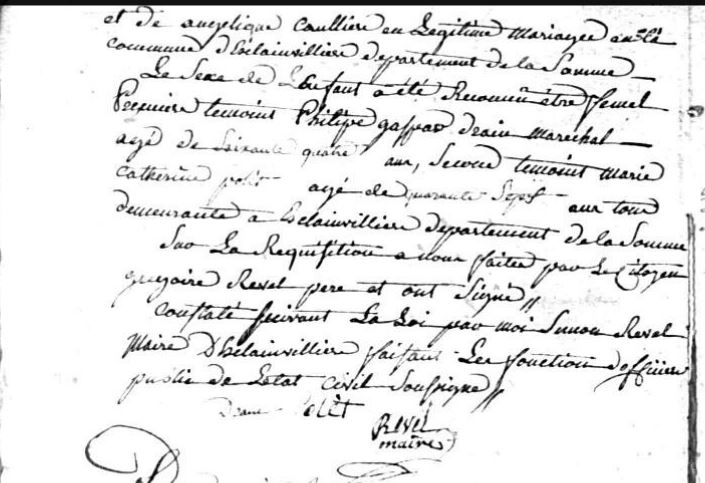 et de angelique Caullier en Legitime Mariagee en la
commune d'Esclainvillier departement de la Somme
Le Sexe de L'Enfant a été Reconnû être femel
Premier temoint Philipe gaspar drain marechal
agé de Soixante quatre ans, Second temoint Marie
Catherine petit agé de quarante Sept ans tous
demeurants a Esclainvillier departement de la Somme
Sur La Requisition a nous faitee par Le Citoyen
gregoire Revel pere et ont Signé
Constaté Suivant La Loi par moi Simon Revel
Maire D'Esclainvillier faisant Les fonction d'officier
public de Letat Civil Soussigne
Revel
maire